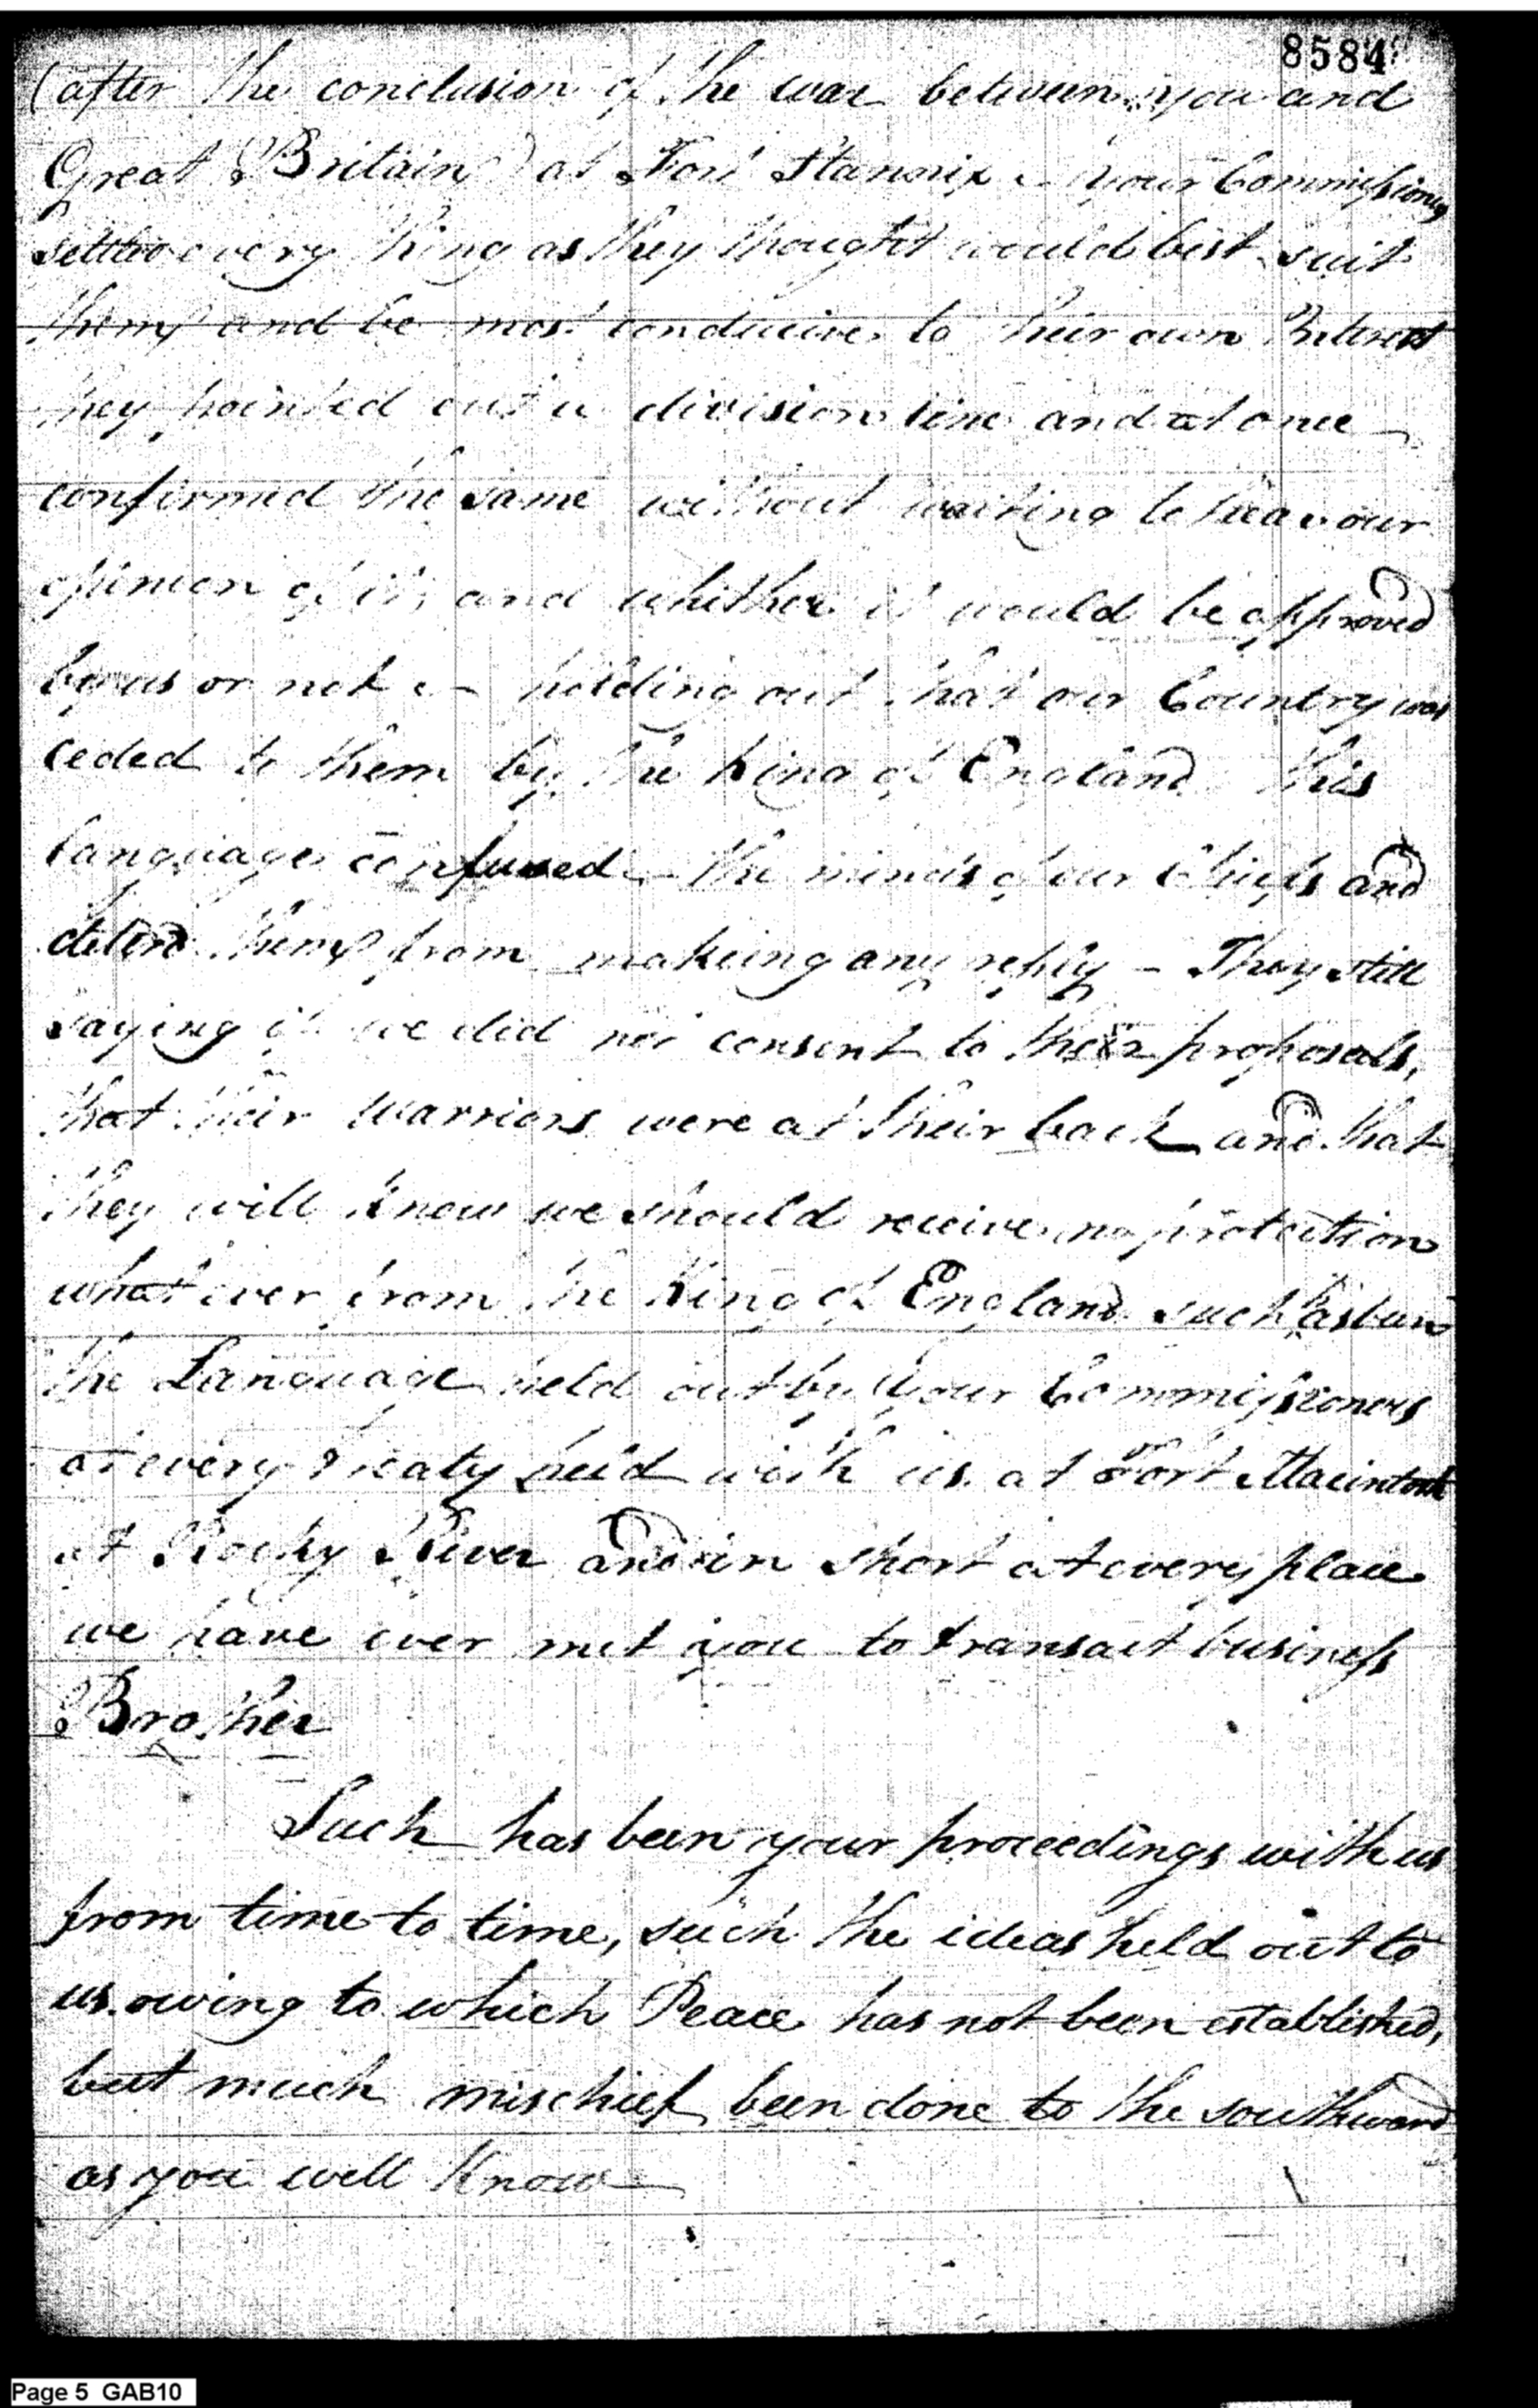 8584
(after the conclusion of the war between you and
Great Britain) at Fort Stanwix – your Commissioners
settled every thing as they thought would best suit
them and be most conducive to their own Interest
they pointed out a division line and at once –
confirmed the same without waiting to hear our
opinion of it, and whither it would be approved
by us or not – holding out that our Country was
ceded to them by the King of England this
language confused the minds of our Chiefs and
deterd them from makeing any reply – They still
saying if we did not consent to their proposals,
that their Warriors were at their back and that
they will know we should receive no protection
what ever from the King of England such has been
the Language held out by Your Commissioners
at every Treaty held with us at Fort Macintosh
at Rocky River and in short at every place
we have ever met you to transact business
Brother
Such has been your proceedings with us
from time to time, such the ideas held out to
us. owing to which Peace has not been established,
but much mischief been done to the southward
as you well Know –
Page 5 GAB10